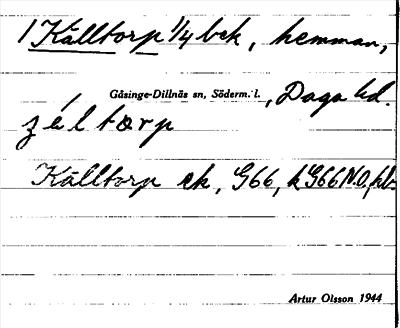 1 Källtorp 1/4 bek, hemman,
Gåsinge-Dillnäs sn, Söderm. l., Daga hd.
zéltorp
Källtorp ek, G66, k G66 N.O,
Artur Olsson 1944